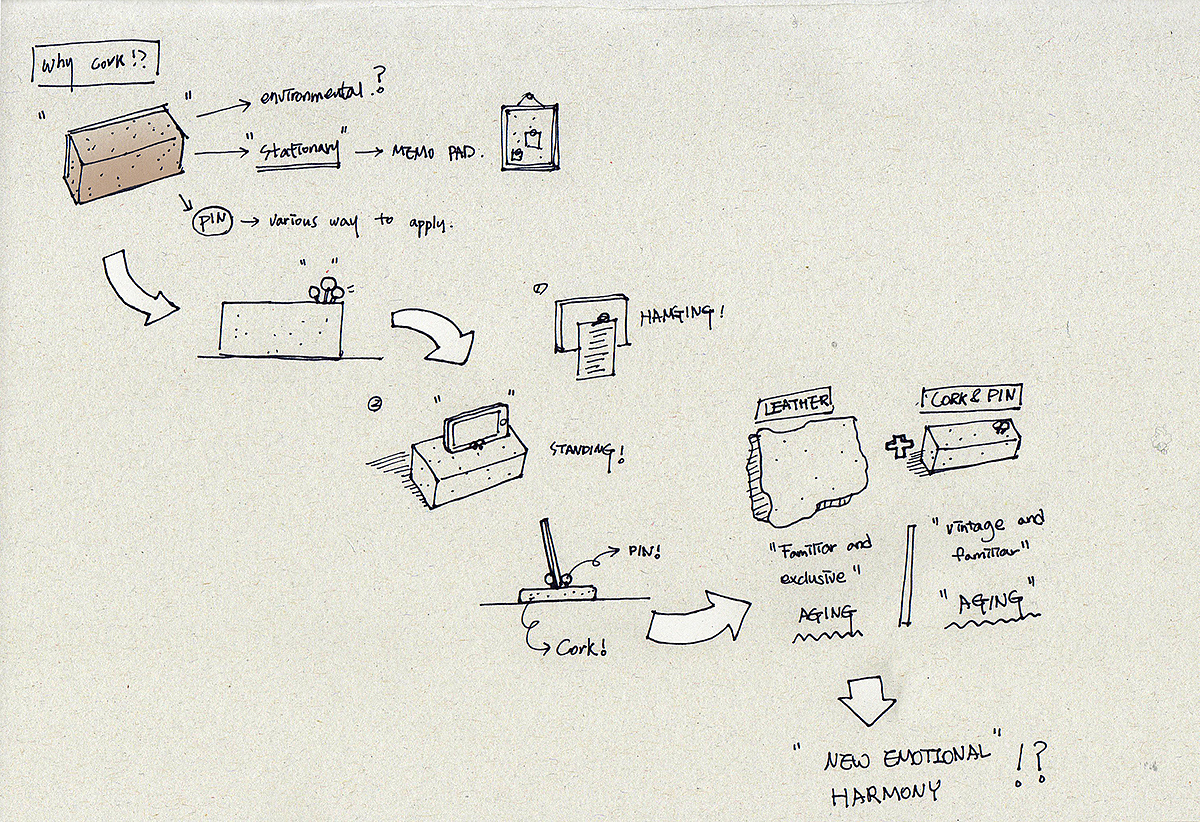 Why Cork!?
" "
environmental.?
"Stationary" → MEMO PAD.
PIN → various way to apply.
" "
1)
HANGING!
2
" "
STANDING!
PIN!
Cork!
LEATHER
CORK & PIN
"Familiar and
exclusive"
AGING
"Vintage and
familiar"
"AGING"
"NEW EMOTIONAL" !?
HARMONY